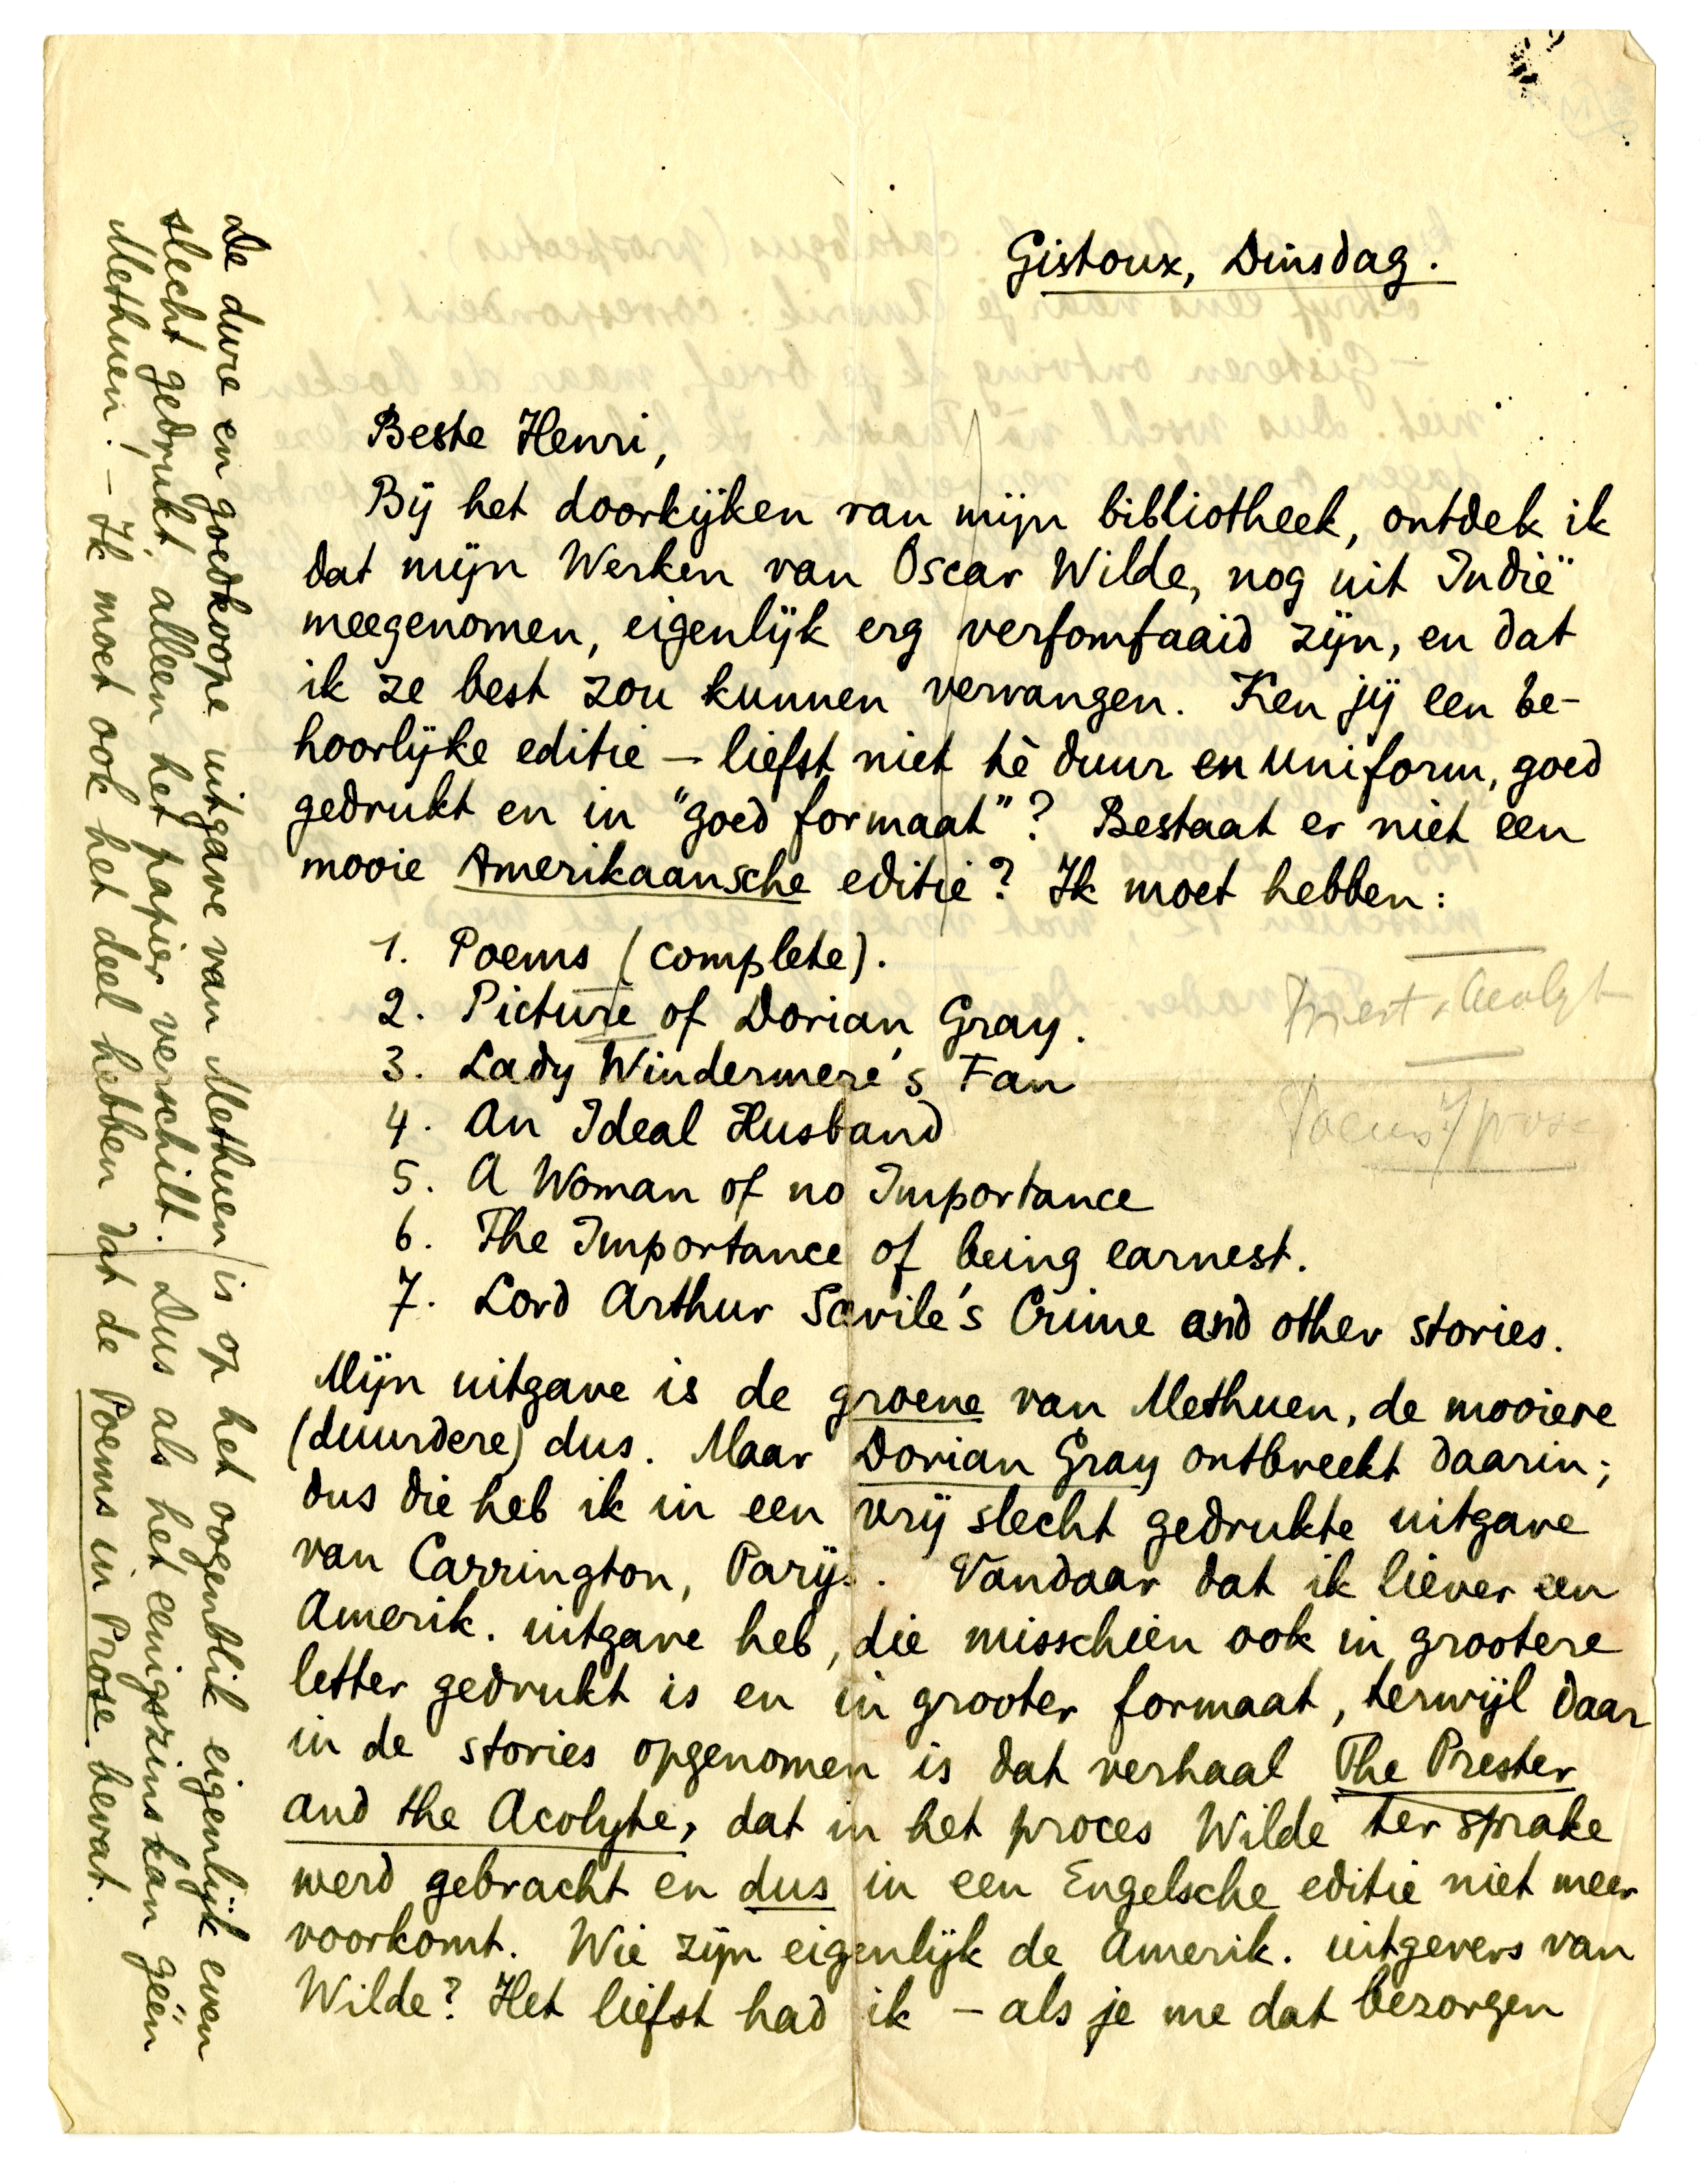 Gistoux, Dinsdag.
Beste Henri,
Bij het doorkijken van mijn bibliotheek, ontdek ik
dat mijn Werken van Oscar Wilde, nog uit Indië
meegenomen, eigenlijk erg verfomfaaid zijn, en dat
ik ze best zou kunnen vervangen. Ken jij een be-
hoorlijke editie – liefst niet tè duur en uniform, goed
gedrukt en in "goed formaat"? Bestaat er niet een
mooie Amerikaansche editie? Ik moet hebben:
1. Poems (complete).
2. Picture of Dorian Gray.
3. Lady Windermere's Fan
4. An Ideal Husband
5. A Woman of no Importance
6. The Importance of being earnest.
7. Lord Arthur Savile's Crime and other stories.
Priest & Acolyt
Poems i/ prose
Mijn uitgave is de groene van Methuen, de mooiere
(duurdere) dus. Maar Dorian Gray ontbreekt daarin;
dus die heb ik in een vrij slecht gedrukte uitgave
van Carrington, Parijs. Vandaar dat ik liever een
Amerik. uitgave heb, die misschien ook in grootere
letter gedrukt is en in grooter formaat, terwijl daar
in de stories opgenomen is dat verhaal The Prester
and the Acolyte, dat in het proces Wilde ter sprake
werd gebracht en dus in een Engelsche editie niet meer
voorkomt. Wie zijn eigenlijk de Amerik. uitgevers van
Wilde? Het liefst had ik – als je me dat bezorgen
De dure en goedkoope uitgave van Methuen is op het oogenblik eigenlijk even
slecht gedrukt, alleen het papier verschilt. Dus als het eenigszins kan géén
Methuen! – Ik moet ook het deel hebben dat de Poems in Prose bevat.